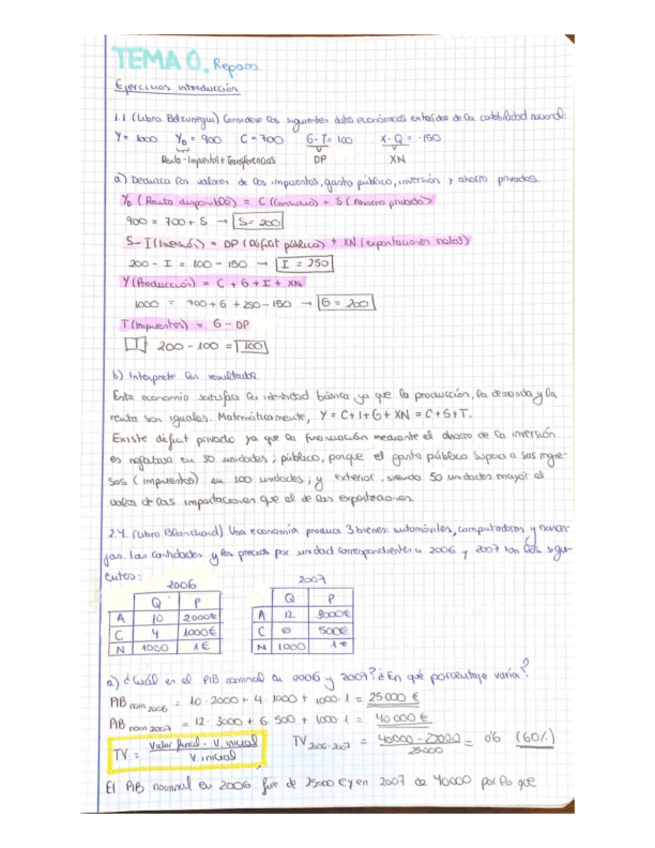 TEMA 0. Repaso.
Ejercicios introducción
1.1 (Libro Belzunegui) Considere los siguientes datos económicos extraídos de la contabilidad nacional:
Y = 1000 YD = 900 C = 700 G-T = 100 X-Q = -150
Renta - Impuestos + Transferencias DP XN
a) Deduzca los valores de los impuestos, gasto público, inversión y ahorro privados.
YD (Renta disponible) = C (Consumo) + S (Ahorro privado)
900 = 700 + S → S = 200
S - I (Inversión) = DP (Déficit público) + XN (exportaciones netas)
200 - I = 100 - 150 → I = 250
Y (Producción) = C + G + I + XN
1000 = 700 + G + 250 - 150 → G = 200
T (Impuestos) = G - DP
T 200 - 100 = 100
b) Interprete los resultados
Esta economía satisface la identidad básica, ya que la producción, la demanda y la
renta son iguales. Matemáticamente, Y = C + I + G + XN = C + S + T.
Existe déficit privado ya que la financiación mediante el ahorro de la inversión
es negativa en 50 unidades; público, porque el gasto público supera a sus ingre-
sos (impuestos) en 100 unidades; y exterior, siendo 50 unidades mayor el
valor de las importaciones que el de las exportaciones.
2.4. (Libro Blanchard) Una economía produce 3 bienes: automóviles, computadoras y naran-
jas. Las cantidades y los precios por unidad correspondientes a 2006 y 2007 son los sigui-
entes:
2006 2007
Q P Q P
A 10 2000€ A 12 3000€
C 4 1000€ C 6 500€
N 1000 1€ N 1000 1€
a) ¿Cuál es el PIB nominal en 2006 y 2007? ¿En qué porcentaje varía?
PIB nom 2006 = 10·2000 + 4·1000 + 1000·1 = 25000 €
PIB nom 2007 = 12·3000 + 6·500 + 1000·1 = 40000 €
TV = Valor final - V. inicial / V. inicial TV 2006-2007 = 40000 - 25000 / 25000 = 0'6 (60%)
El PIB nominal en 2006 fue de 25000 € y en 2007 de 40000 por lo que